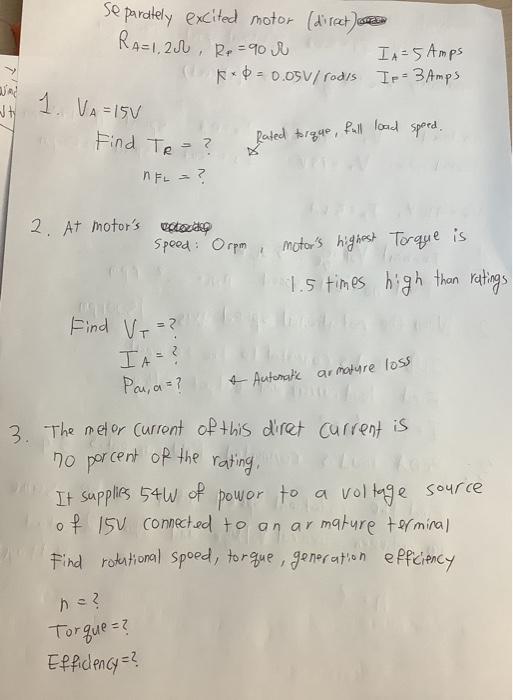 Separately excited motor (direct)
RA=1,2Ω, RF=90Ω
IA=5Amps
K×φ=0.05V/rad/s IF=3Amps
1. VA=15V
Find TR=? Rated torque, full load speed.
nFL=?
2. At motor's
speed: 0rpm, motor's highest Torque is
1.5 times high than ratings
Find VT=?
IA=?
Pcu,a=? ← Automatic armature loss
3. The motor current of this direct current is
70 percent of the rating.
It supplies 54W of power to a voltage source
of 15V connected to an armature terminal
Find rotational speed, torque, generation efficiency
n=?
Torque=?
Efficiency=?